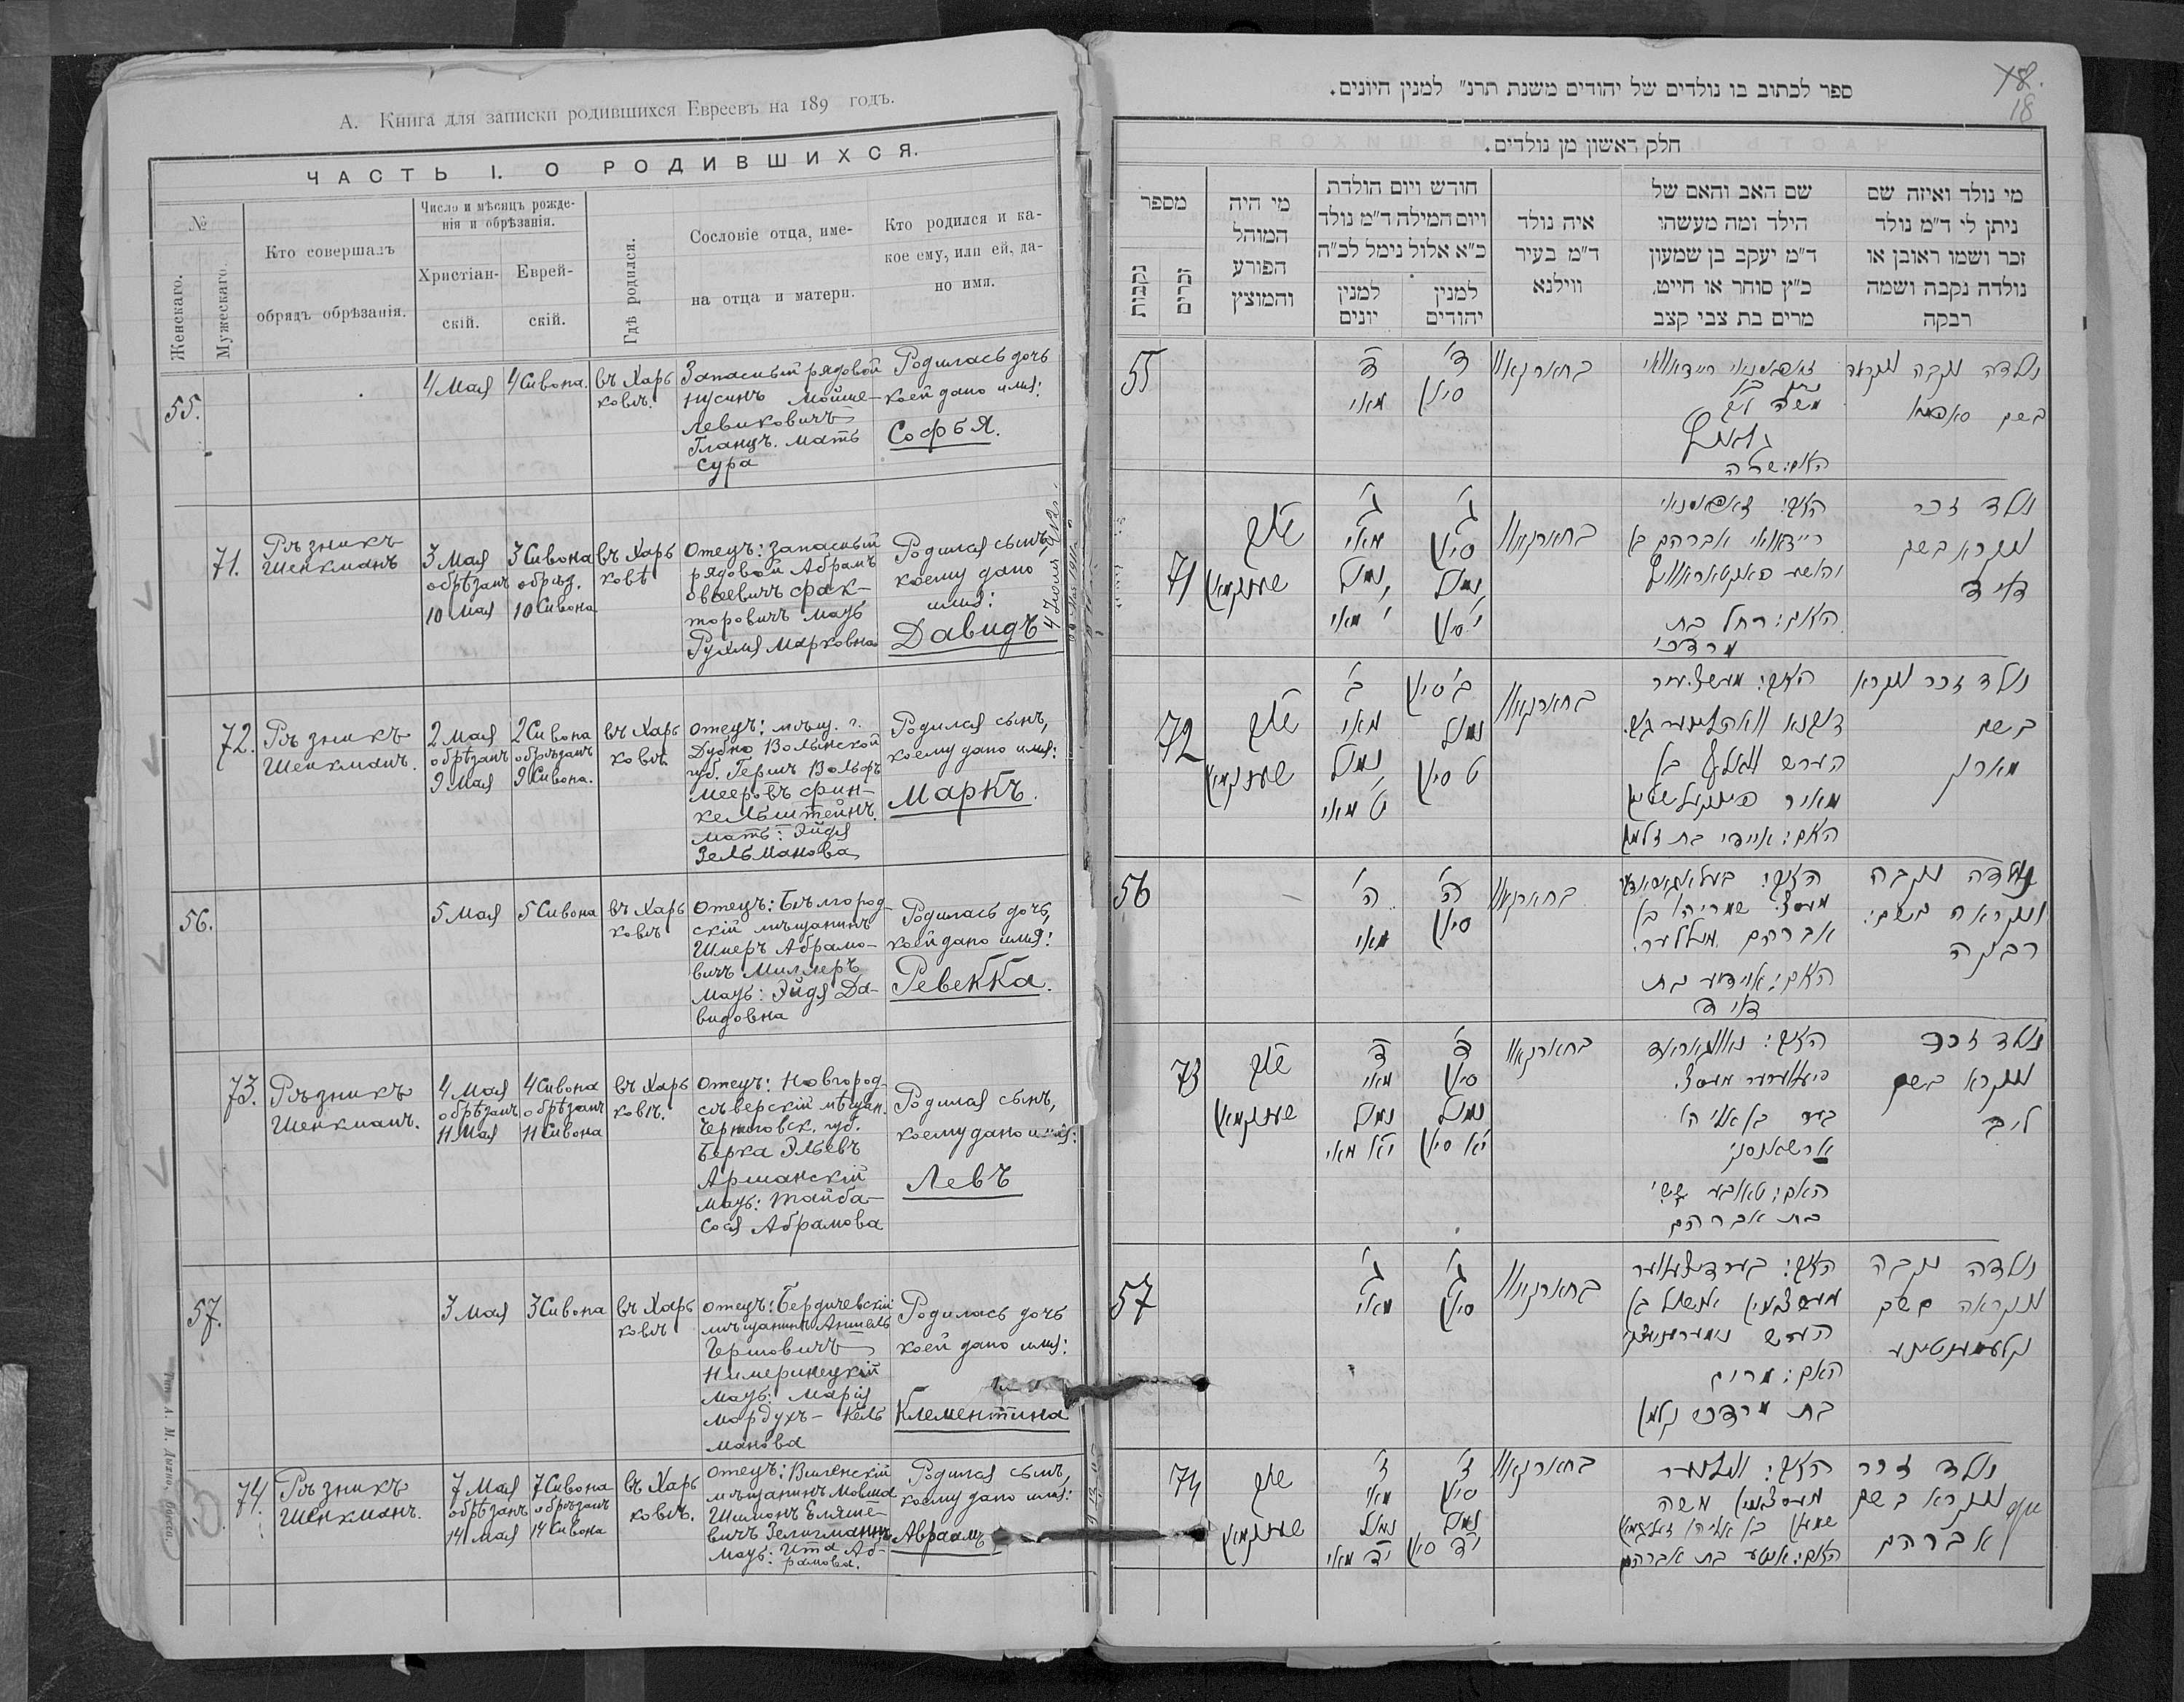 А. Книга для записки родившихся Евреевъ на 189 годъ.
ЧАСТЬ I. О РОДИВШИХСЯ.
№
Женскаго.
Мужескаго.
Кто совершалъ
обрядъ обрѣзанія.
Число и мѣсяцъ рожде-
нія и обрѣзанія.
Христіан-
скій.
Еврей-
скій.
Гдѣ родился.
Сословіе отца, име-
на отца и матери.
Кто родился и ка-
кое ему, или ей, да-
но имя.
55.
4 Мая
4 Сивона.
въ Харь
ковѣ.
Запасный рядовой
Нусинъ Мойше-
Левиковичъ
Гланцъ. Мать
Сура
Родилась дочь
коей дано имя:
Софья.
71.
Рѣзникъ
Шенкманъ
3 Мая
обрѣзанъ
10 Мая
3 Сивона
обрѣз.
10 Сивона
въ Харь
ковѣ
Отецъ: запасный
рядовой Абрамъ
Овсеевичъ Фак-
торовичъ мать
Рухля Марковна
Родился сынъ,
коему дано
имя:
Давидъ
72.
Рѣзникъ
Шенкманъ.
2 Мая
обрѣзанъ
9 Мая
2 Сивона
обрѣзанъ
9 Сивона.
въ Харь
ковѣ.
Отецъ: мѣщ. г.
Дубно Волынской
губ. Гершъ Вольфъ
Мееровъ Фин-
кельштейнъ.
мать: Эйдя
Зельманова
Родился сынъ,
коему дано имя:
Маркъ.
56.
5 Мая
5 Сивона
въ Харь
ковѣ
Отецъ: Бѣлгород-
скій мѣщанинъ
Шмеръ Абрамо-
вичъ Миллеръ
мать: Эйдя Да-
видовна
Родилась дочь,
коей дано имя:
Ревекка.
73.
Рѣзникъ
Шенкманъ.
4 Мая
обрѣзанъ
11 Мая
4 Сивона
обрѣзанъ
11 Сивона
въ Харь
ковѣ.
Отецъ: Новгород-
сѣверскій мѣщан.
Черниговск. губ.
Берка Эльевъ
Аршанскій
мать: Тайба-
Сося Абрамова
Родился сынъ,
коему дано имя:
Левъ
57.
3 Мая
3 Сивона
въ Харь
ковѣ
Отецъ: Бердичевскій
мѣщанинъ Аншель
Гершовичъ
Нимеринецкій
мать: Марія
Мордухъ-Кель
манова
Родилась дочь
коей дано имя:
Клементина
74.
Рѣзникъ
Шенкманъ.
7 Мая
обрѣзанъ
14 Мая
7 Сивона
обрѣзанъ
14 Сивона
въ Харь
ковѣ.
Отецъ: Виленскій
мѣщанинъ Мовша
Шимонъ Еляше-
вичъ Зелигманъ
мать: Ита Аб-
рамова.
Родился сынъ,
коему дано имя:
Авраамъ
18
ספר לכתוב בו נולדים של יהודים משנת תרנ״ למנין היונים.
חלק ראשון מן נולדים.
מספר
נקבות
זכרים
מי היה
המוהל
הפורע
והמוצץ
חודש ויום הולדת
ויום המילה ד״מ נולד
כ״א אלול נימל לכ״ה
למנין
יונים
למנין
יהודים
איה נולד
ד״מ בעיר
ווילנא
שם האב והאם של
הילד ומה מעשהו
ד״מ יעקב בן שמעון
כ״ץ סוחר או חייט,
מרים בת צבי קצב
מי נולד ואיזה שם
ניתן לי ד״מ נולד
זכר ושמו ראובן או
נולדה נקבה ושמה
רבקה
55
ד׳
מאי
ד׳
סיון
בחארקאוו
משה
האם: שרה
נולדה נקבה
בשם
71
שו״ב
שענקמאן
ג׳
מאי
נמול
י׳ מאי
ג׳
סיון
נמול
י׳ סיון
בחארקאוו
האב:
אברהם בן
האם: רחל בת
מרדכי
נולד זכר
ונקרא בשם
דוד
72
שו״ב
שענקמאן
ב׳
מאי
נמול
ט׳ מאי
ב׳ סיון
נמול
ט סיון
בחארקאוו
האב:
הערש וואלף בן
מאיר פינקעלשטיין
האם: איידי בת זלמן
נולד זכר ונקרא
בשם
מארק
56
ה׳
מאי
ה׳
סיון
בחארקאוו
האב:
שמריהו בן
אברהם מיללער.
האם: איידיע בת
דוד
נולדה נקבה
ונקראה בשם:
רבקה
73
שו״ב
שענקמאן
ד׳
מאי
נמול
י״א מאי
ד׳
סיון
נמול
י״א סיון
בחארקאוו
האב:
בער בן אליהו
ארשאנסקי
האם: טאובע
בת אברהם
נולד זכר
ונקרא בשם
ליב
57
ג׳
מאי
ג׳
סיון
בחארקאוו
האב: בערדיטשעווער
אנשיל בן
הערש
האם: מרים
בת מרדכי קלמן
נולדה נקבה
ונקראה בשם
קלעמענטינע
74
שו״ב
שענקמאן
ז׳
מאי
נמול
י״ד מאי
ז׳
סיון
נמול
י״ד סיון
בחארקאוו
האב: ווילנער
משה
שמעון בן אליהו זעליגמאן
האם: איטע בת אברהם
נולד זכר
ונקרא בשם
אברהם